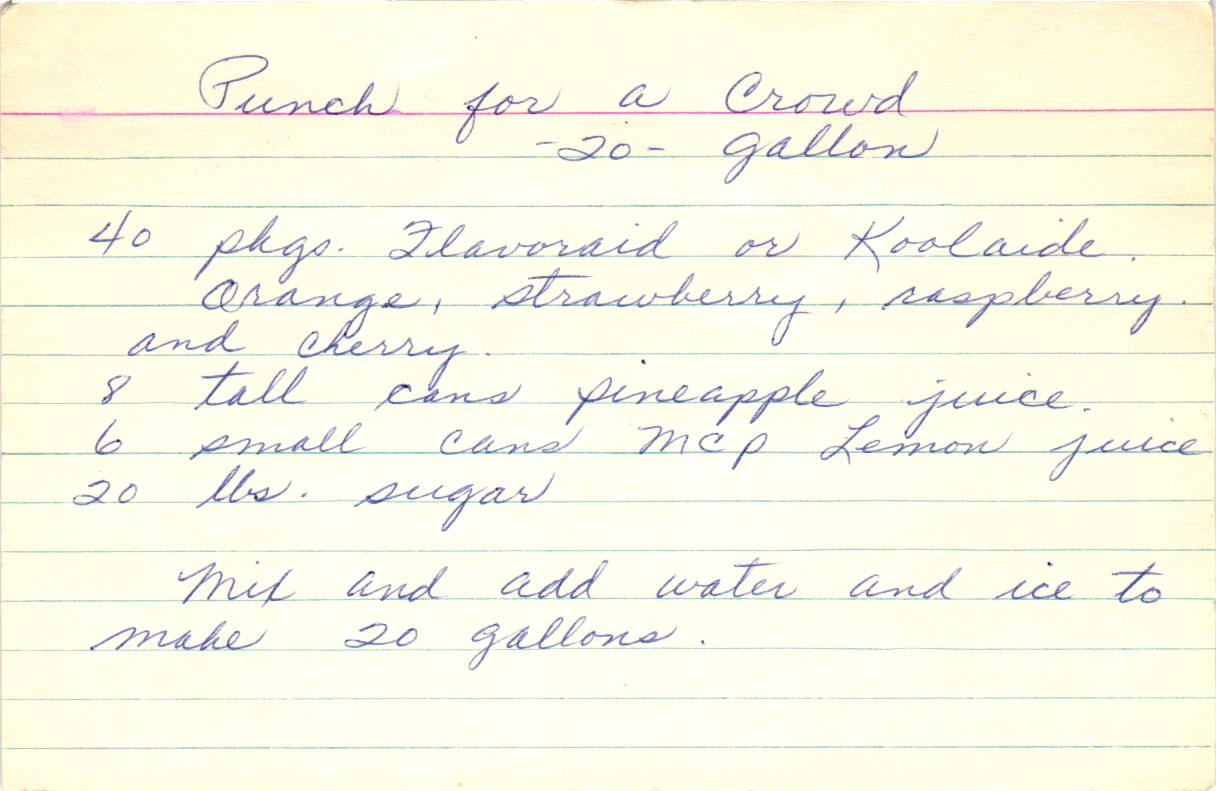 Punch for a Crowd
-20- gallon
40 pkgs. Flavoraid or Koolaide.
Orange, strawberry, raspberry.
and cherry.
8 tall cans pineapple juice.
6 small cans MCP Lemon juice
20 lbs. sugar
Mix and add water and ice to
make 20 gallons.